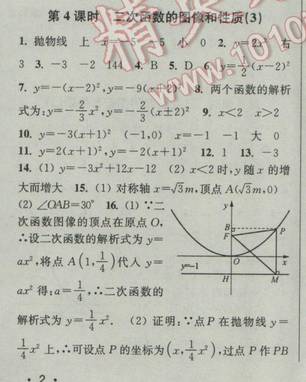 第4课时 二次函数的图像和性质(3)
1. 抛物线 上 x=-5 -5 小 0 2. y=2x² 右
3 3. -3 -2 144 4. B 5. D 6. y=½(x-2)²
7. y=-(x-2)², y=-9(x+2)² 8. 两个函数的解析
式为: y=-⅔x², y=-⅔(x±2)² 9. x<2 x>2
10. y=-3(x+1)² (-1,0) x=-1 -1 大 0
11. y=2(x+1)², y=-2(x+1)² 12. 1 13. -3
14. (1) y=-3x²+12x-12 (2) x<2时, y随x的增
大而增大 15. (1) 对称轴x=√3m, 顶点A(√3m,0)
(2) ∠OAB=30° 16. (1)∵二
次函数图像的顶点在原点O,
∴设二次函数的解析式为y=
ax², 将点A(1,¼)代入y=
ax²得: a=¼, ∴二次函数的
解析式为y=¼x². (2) 证明: ∵点P在抛物线y=
¼x²上, ∴可设点P的坐标为(x,¼x²), 过点P作PB
y
B
F
P
O
x
y=-1
H
M
· 2 ·